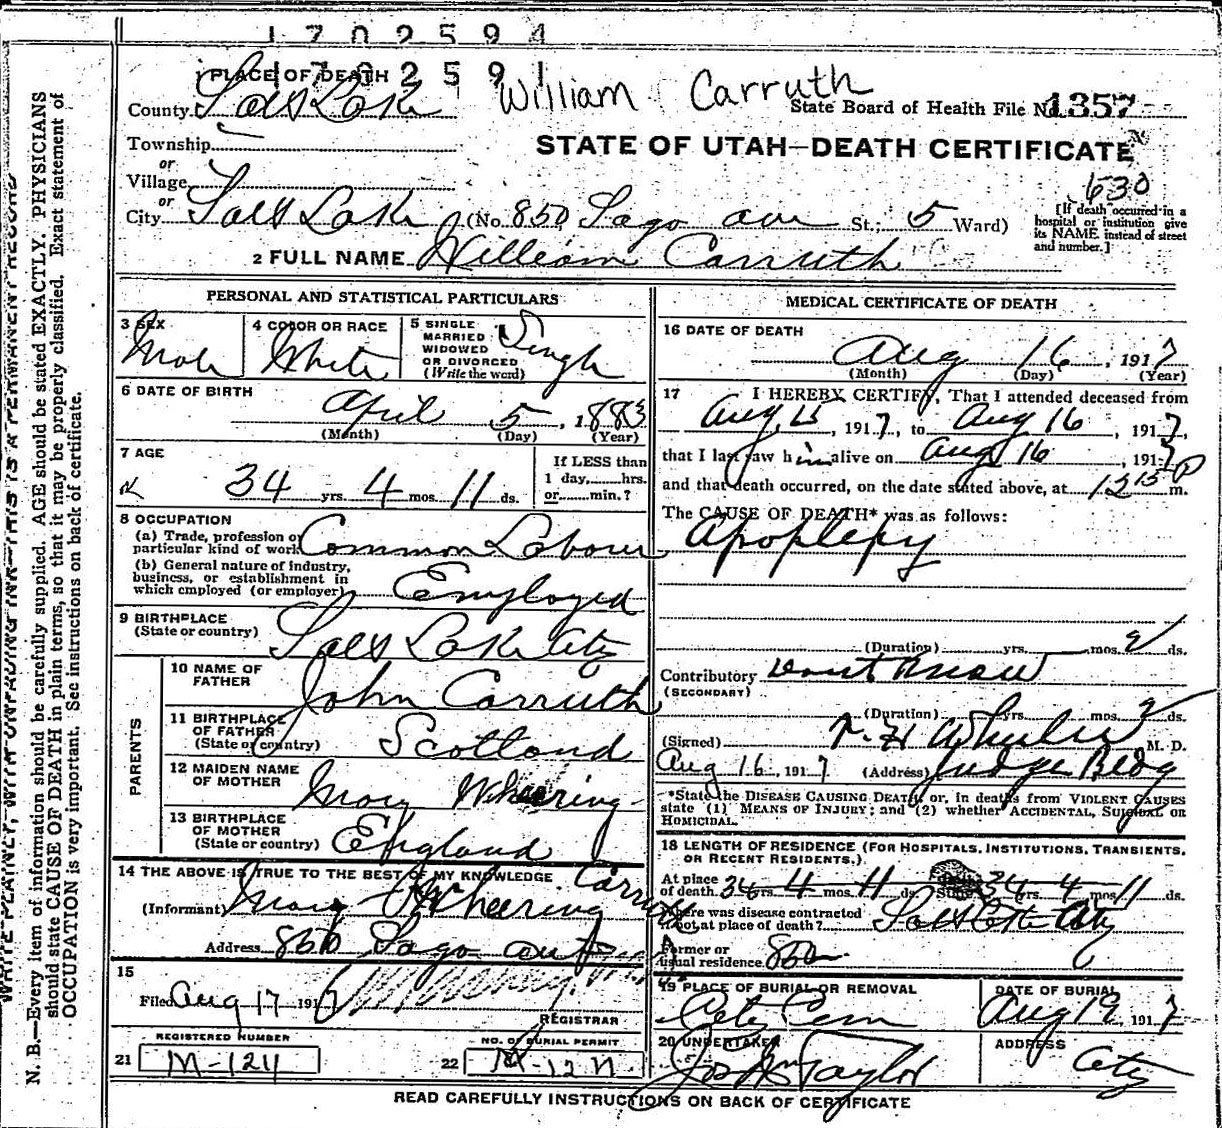 1702594
1702591
1 PLACE OF DEATH
William Carruth
County Salt Lake
State Board of Health File No. 1357
Township
STATE OF UTAH—DEATH CERTIFICATE
or
Village
or
630
City Salt Lake (No. 850 Sago ave St.; 5 Ward)
[If death occurred in a hospital or institution give its NAME instead of street and number.]
2 FULL NAME William Carruth
PERSONAL AND STATISTICAL PARTICULARS
3 SEX Male
4 COLOR OR RACE White
5 SINGLE MARRIED WIDOWED OR DIVORCED (Write the word) Single
6 DATE OF BIRTH
April 5, 1883
(Month) (Day) (Year)
7 AGE
34 yrs. 4 mos. 11 ds.
If LESS than 1 day,......hrs. or......min.?
8 OCCUPATION
(a) Trade, profession or particular kind of work Common Labour
(b) General nature of industry, business, or establishment in which employed (or employer) Employed
9 BIRTHPLACE
(State or country) Salt Lake City
PARENTS
10 NAME OF FATHER John Carruth
11 BIRTHPLACE OF FATHER (State or country) Scotland
12 MAIDEN NAME OF MOTHER Mary Wheering
13 BIRTHPLACE OF MOTHER (State or country) England
14 THE ABOVE IS TRUE TO THE BEST OF MY KNOWLEDGE
(Informant) Mary Wheering Carruth
Address 850 Sago ave
15
Filed Aug 17, 1917
REGISTRAR
REGISTERED NUMBER
21 M-1211
NO. OF BURIAL PERMIT
22
MEDICAL CERTIFICATE OF DEATH
16 DATE OF DEATH
Aug 16, 1917
(Month) (Day) (Year)
17 I HEREBY CERTIFY, That I attended deceased from
Aug 15, 1917, to Aug 16, 1917,
that I last saw him alive on Aug 16, 1917
and that death occurred, on the date stated above, at 12 15 P m.
The CAUSE OF DEATH* was as follows:
Apoplexy
(Duration) yrs. mos. 2 ds.
Contributory Dont Know
(SECONDARY)
(Duration) yrs. mos. 2 ds.
(Signed) Wheeler M. D.
Aug 16, 1917 (Address) Judge Bldg
*State the DISEASE CAUSING DEATH, or, in deaths from VIOLENT CAUSES
state (1) MEANS OF INJURY; and (2) whether ACCIDENTAL, SUICIDAL OR
HOMICIDAL.
18 LENGTH OF RESIDENCE (FOR HOSPITALS, INSTITUTIONS, TRANSIENTS,
OR RECENT RESIDENTS.)
At place of death. 34 yrs. 4 mos. 11 ds. State 34 yrs. 4 mos. 11 ds.
Where was disease contracted if not at place of death? Salt Lake City
Former or usual residence 850
19 PLACE OF BURIAL OR REMOVAL
City Cem
DATE OF BURIAL
Aug 19, 1917
20 UNDERTAKER
Jos Wm Taylor
ADDRESS
City
READ CAREFULLY INSTRUCTIONS ON BACK OF CERTIFICATE
WRITE PLAINLY, WITH UNFADING INK—THIS IS A PERMANENT RECORD
N. B.—Every item of information should be carefully supplied. AGE should be stated EXACTLY. PHYSICIANS
should state CAUSE OF DEATH in plain terms, so that it may be properly classified. Exact statement of
OCCUPATION is very important. See instructions on back of certificate.